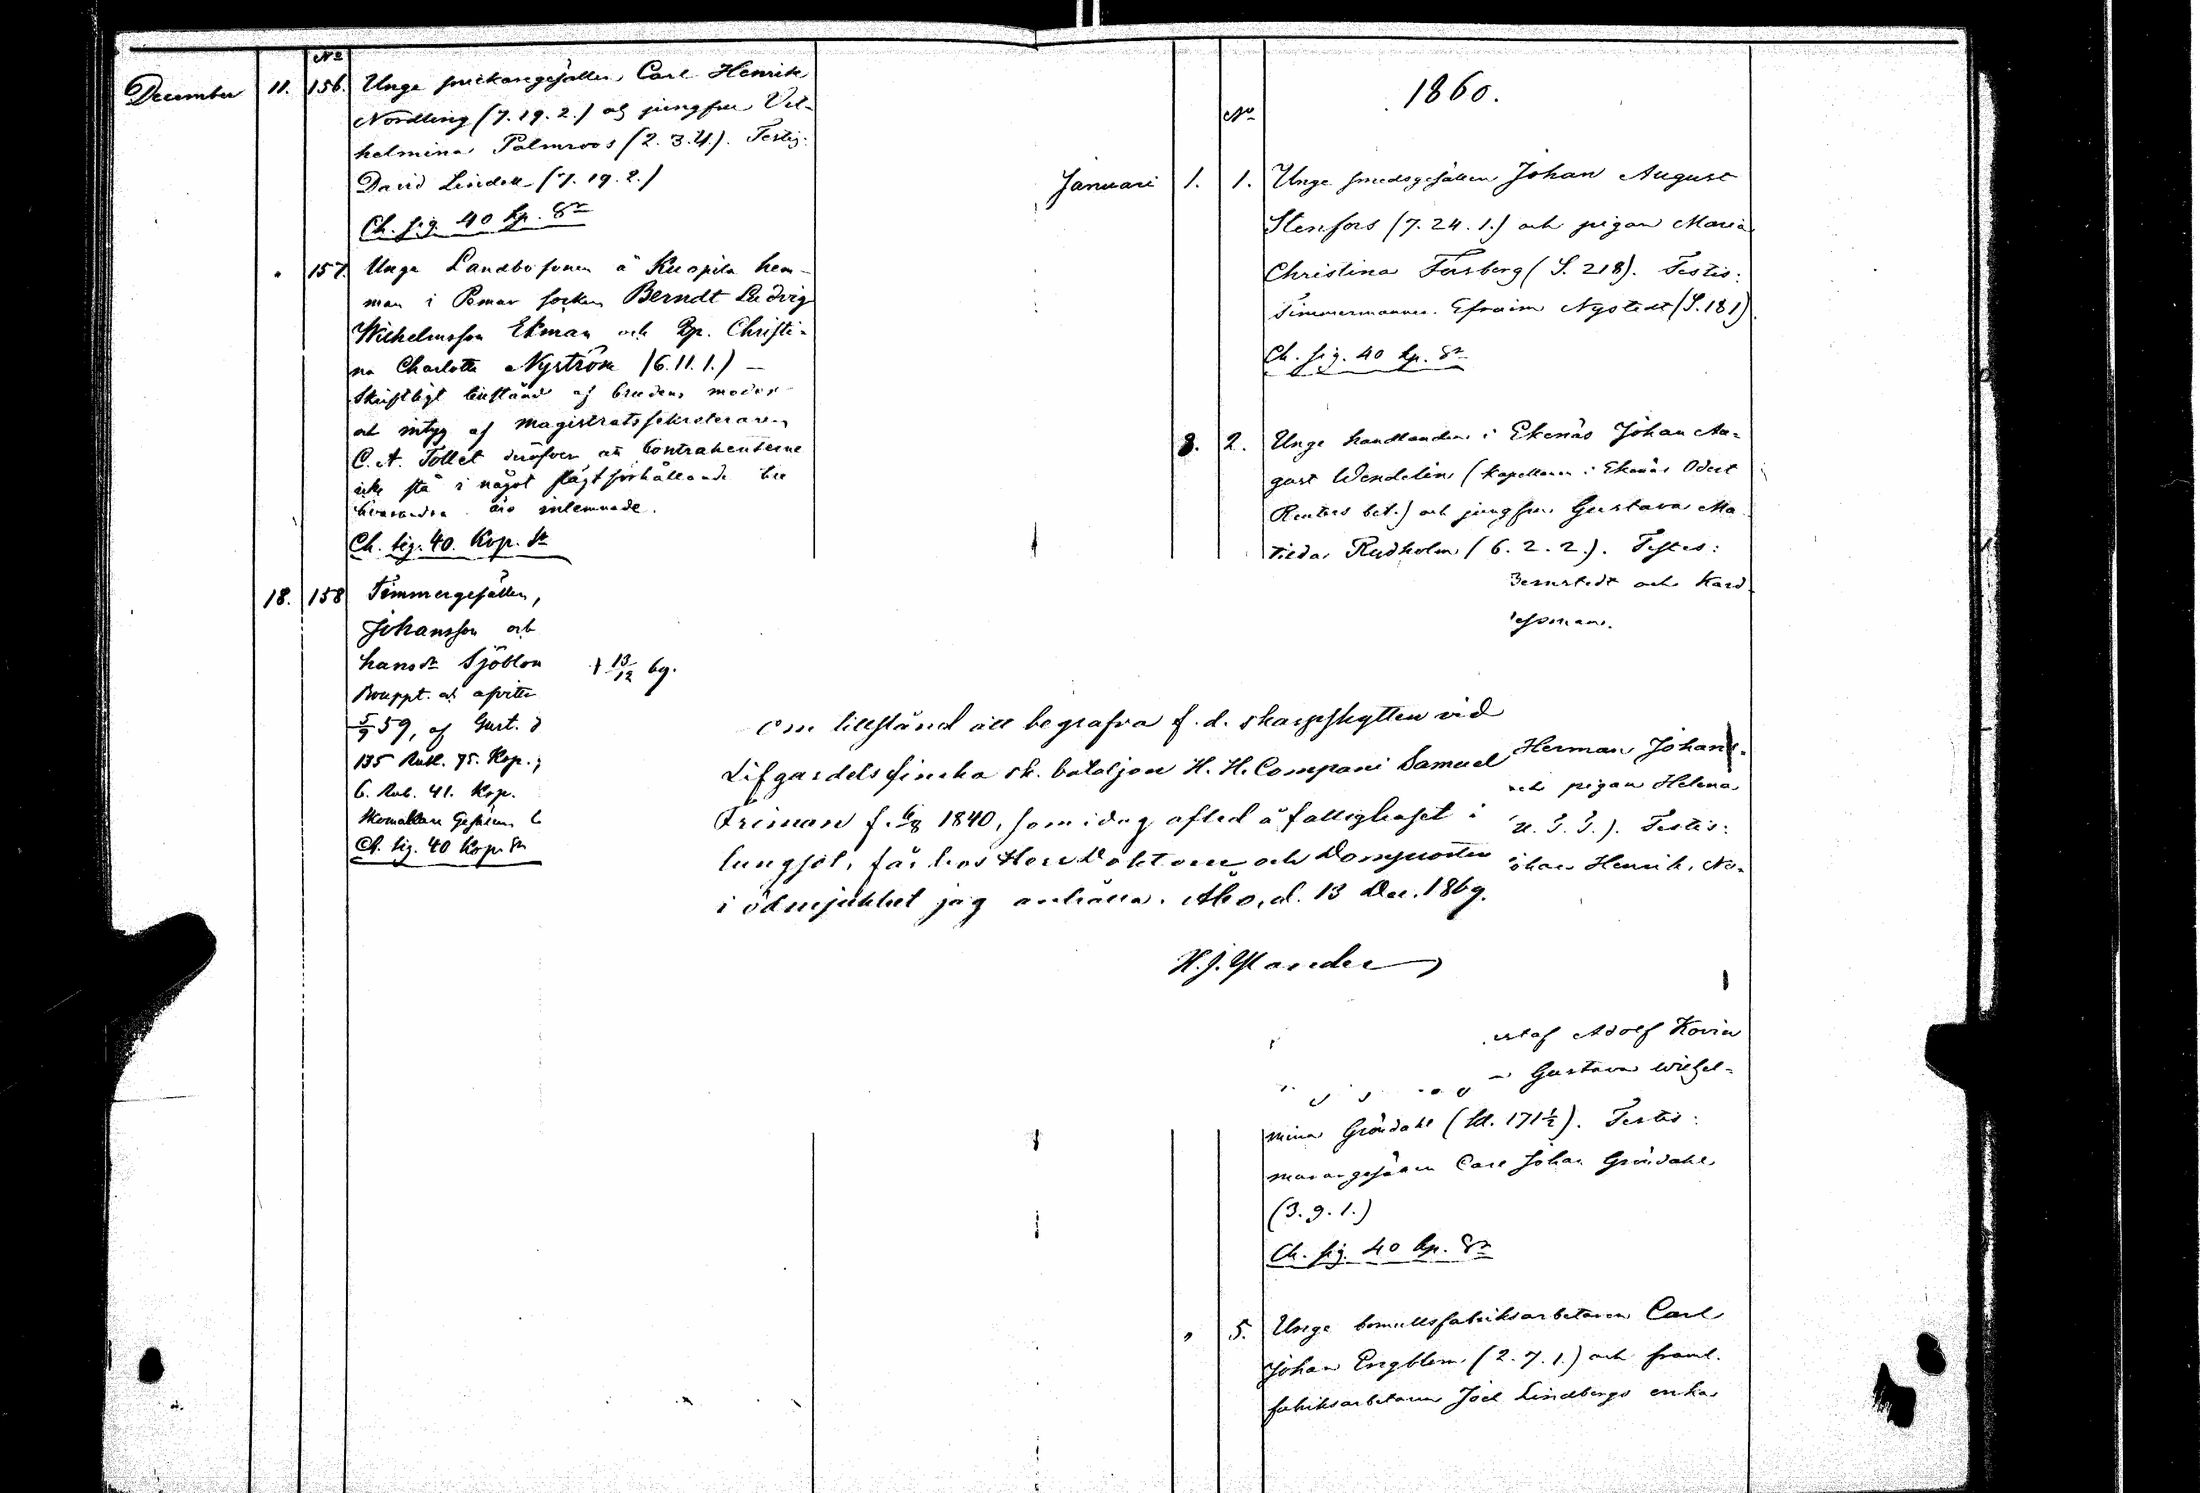 No
December 11. 156. Unge snickaregesällen Carl Henrik
Nordling (7. 19. 2.) och jungfru Vil-
helmina Palmroos (2. 3. 4.). Testis:
David Lindell (7. 19. 2.)
Ch. sig. 40 kp. Sr
" 157. Unga Landbosonen å Knapila hem-
man i Pemar socken Berndt Ludvig
Wilhelmsson Ekman och Christi-
na Charlotta Nyström (6. 11. 1.) —
Skriftligt bifstånd af brudens moder
och intyg af Magistratssekreteraren
C. A. Tollet deröfver att Contrahenterne
icke stå i något slägtförhållande till
hvarandra äro inlemnade.
Ch. sig. 40. Kop. Sr
18. 158 Timmergesällen,
Johansson och
hansdr Sjöblom
Bouppt. och
5/9 59, af Gust.
135 Rubl. 75. Kop.;
6. Rub. 41. Kop.
Skomakare Gesällen
Ch. sig. 40 Kop. Sr
+ 13/12 69.
Om tillstånd att begrafva f. d. skarpskytten vid
Lifgardets finska sk. bataljon H. H. Compani Samuel
Friman f. 6/8 1840, som i dag afled å fattighuset i
lungsot, får hos Herr Doktorn och Domprosten
i ödmjukhet jag anhålla. Åbo, d. 13 Dec. 1869.
H. J. Ylander
1860.
No
Januari 1. 1. Unge smedsgesällen Johan August
Stenfors (7. 24. 1.) och pigan Maria
Christina Forsberg (S. 218). Testis:
Timmermannen Efraim Nystedt (S. 181).
Ch. sig. 40 kp. Sr
8. 2. Unge handlanden i Ekenäs Johan Au-
gust Wendelin (kapellanen i Ekenäs Odert
Reuters bet.) och jungfru Gustava Ma-
tilda Rudholm (6. 2. 2.). Testes:
Bernstedt och Kard
Herman Johans-
och pigan Helena
Testis:
Johan Henrik No-
ustaf Adolf Kovin
Gustava Wilhel-
mina Gröndahl (Kl. 171 1/2). Testis:
muraregesällen Carl Johan Gröndahl
(3. 9. 1.)
Ch. sig. 40 kp. Sr
" 5. Unge bomullsfabriksarbetaren Carl
Johan Engblom (2. 7. 1.) och framl.
fabriksarbetaren Joel Lindbergs enka